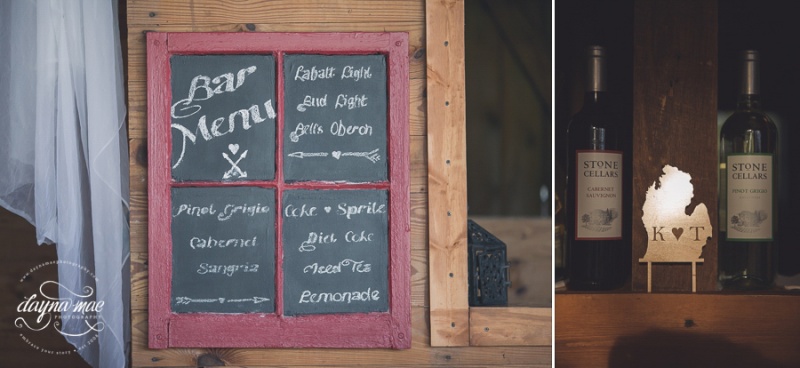 Bar
Menu
Labatt Light
Bud Light
Bell's Oberon
Pinot Grigio
Cabernet
Sangria
Coke ♥ Sprite
Diet Coke
Iced Tea
Lemonade
STONE
CELLARS
CABERNET
SAUVIGNON
STONE
CELLARS
PINOT GRIGIO
K ♥ T
www.daynamaephotography.com
dayna mae
PHOTOGRAPHY
embrace your story